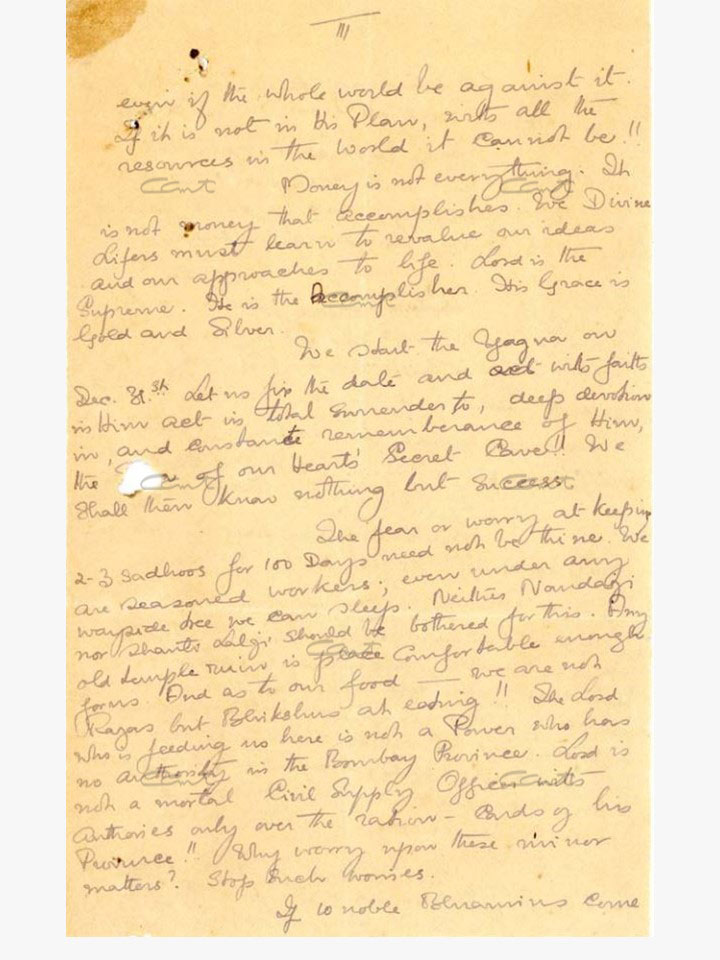 III
even if the whole world be against it.
If it is not in His Plan, with all the
resources in the world it cannot be!!
Money is not everything. It
is not money that accomplishes. We Divine
Lifers must learn to revalue our ideas
and our approaches to life. Lord is the
Supreme. He is the Accomplisher. His Grace is
Gold and Silver.
We start the Yagna on
Dec. 31.st Let us fix the date and act with faith
in Him act in total surrender to, deep devotion
in, and constant rememberance of Him,
the of our Hearts' Secret Cave!! We
shall then know nothing but Success
The fear or worry at keeping
2-3 Sadhoos for 100 Days need not be thine. We
are seasoned workers; even under any
wayside tree we can sleep. Neither Nandaji
nor Shanti Lalji should be bothered for this. Any
old temple ruin is place comfortable enough
for us. And as to our food — we are not
Rajas but Bhikshus at eating!! The Lord
who is feeding us here is not a Power who has
no authority in the Bombay Province. Lord is
not a mortal Civil Supply Officer with
Authories only over the ration-cards of his
Province!! Why worry upon these minor
matters? Stop such worries.
If 10 noble come